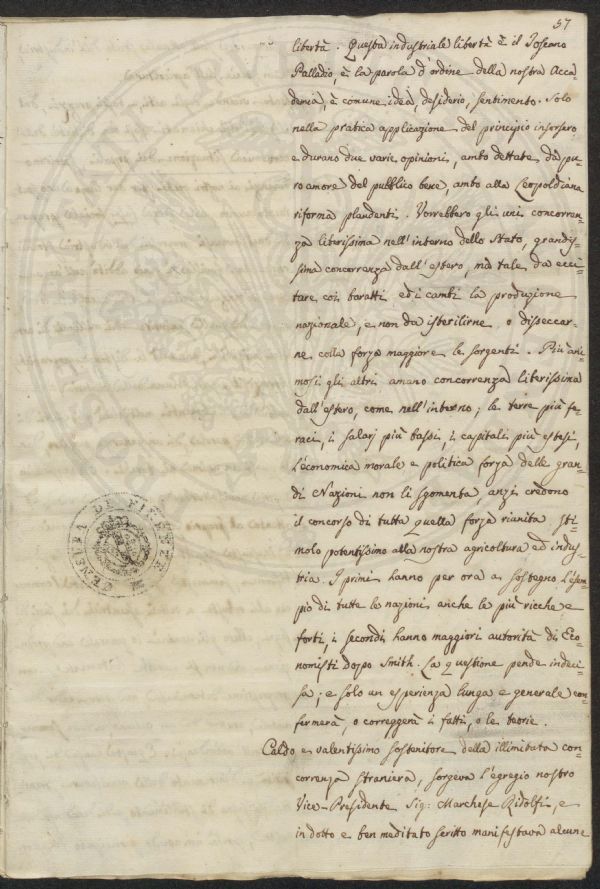 57
libertà. Questa industriale libertà è il Toscano
Palladio, è la parola d'ordine della nostra Acca=
demia, è comune idea, desiderio, sentimento. Solo
nella pratica applicazione del principio insorsero
e durano due varie opinioni, ambo dettate da pu=
ro amore del pubblico bene, ambo alla Leopoldiana
riforma plaudenti. Vorrebbero gli uni concorren=
za liberissima nell'interno dello Stato, grandis=
sima concorrenza dall'estero, ma tale da ecci=
tare coi baratti ed i cambi la produzione
nazionale, e non da isterilirne o disseccar=
ne colla forza maggiore le sorgenti. Più ani=
mosi gli altri amano concorrenza liberissima
dall'estero, come nell'interno; le terre più fe=
raci, i salarj più bassi, i capitali più estesi,
l'economica morale e politica forza delle gran=
di Nazioni non li sgomenta, anzi credono
il concorso di tutta quella forza riunita sti=
molo potentissimo alla nostra agricoltura ed indus=
tria. I primi hanno per ora a sostegno l'esem=
pio di tutte le nazioni anche le più ricche e
forti, i secondi hanno maggiori autorità di Eco=
nomisti dopo Smith. La questione pende indeci=
sa; e solo un esperienza lunga e generale con=
fermerà, o correggerà i fatti, o le teorie.
Caldo e valentissimo sostenitore della illimitata con=
correnza straniera, sorgeva l'egregio nostro
Vice-Presidente Sig: Marchese Ridolfi, e
in dotto e ben meditato scritto manifestava alcune
CENSURA DI FIRENZE